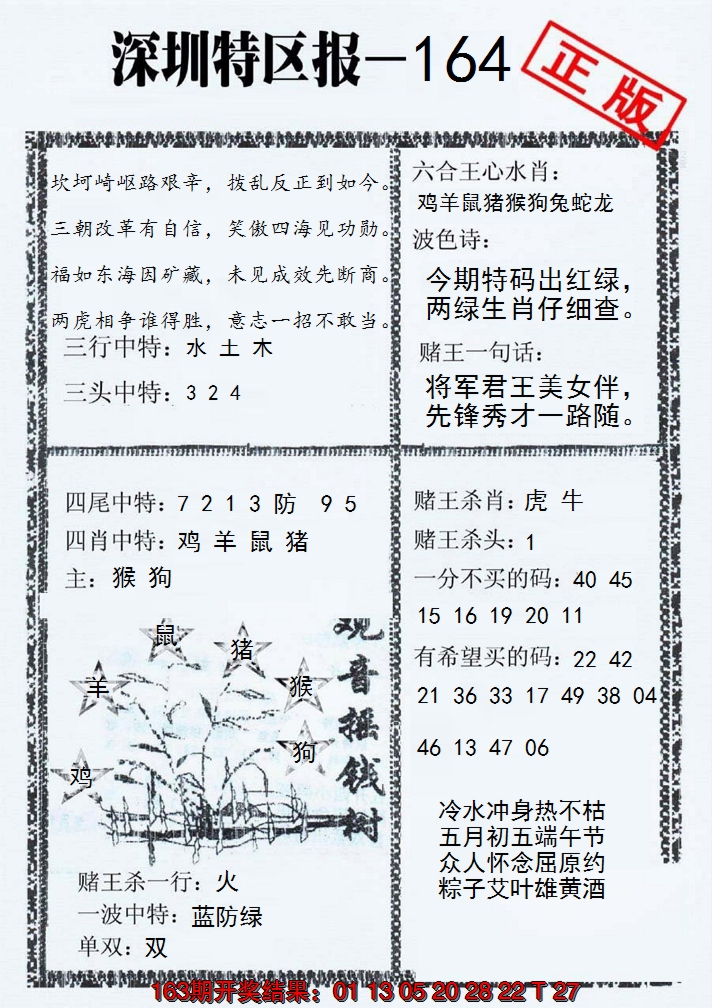 深圳特区报-164
正版
坎坷崎岖路艰辛，拨乱反正到如今。
三朝改革有自信，笑傲四海见功勋。
福如东海因矿藏，未见成效先断商。
两虎相争谁得胜，意志一招不敢当。
三行中特：水 土 木
三头中特：3 2 4
六合王心水肖：
鸡羊鼠猪猴狗兔蛇龙
波色诗：
今期特码出红绿，
两绿生肖仔细查。
赌王一句话：
将军君王美女伴，
先锋秀才一路随。
四尾中特：7 2 1 3 防 9 5
四肖中特：鸡 羊 鼠 猪
主：猴 狗
鼠
猪
羊
猴
狗
鸡
观音摇钱树
赌王杀一行：火
一波中特：蓝防绿
单双：双
赌王杀肖：虎 牛
赌王杀头：1
一分不买的码：40 45
15 16 19 20 11
有希望买的码：22 42
21 36 33 17 49 38 04
46 13 47 06
冷水冲身热不枯
五月初五端午节
众人怀念屈原约
粽子艾叶雄黄酒
163期开奖结果：01 13 05 20 28 22 T 27